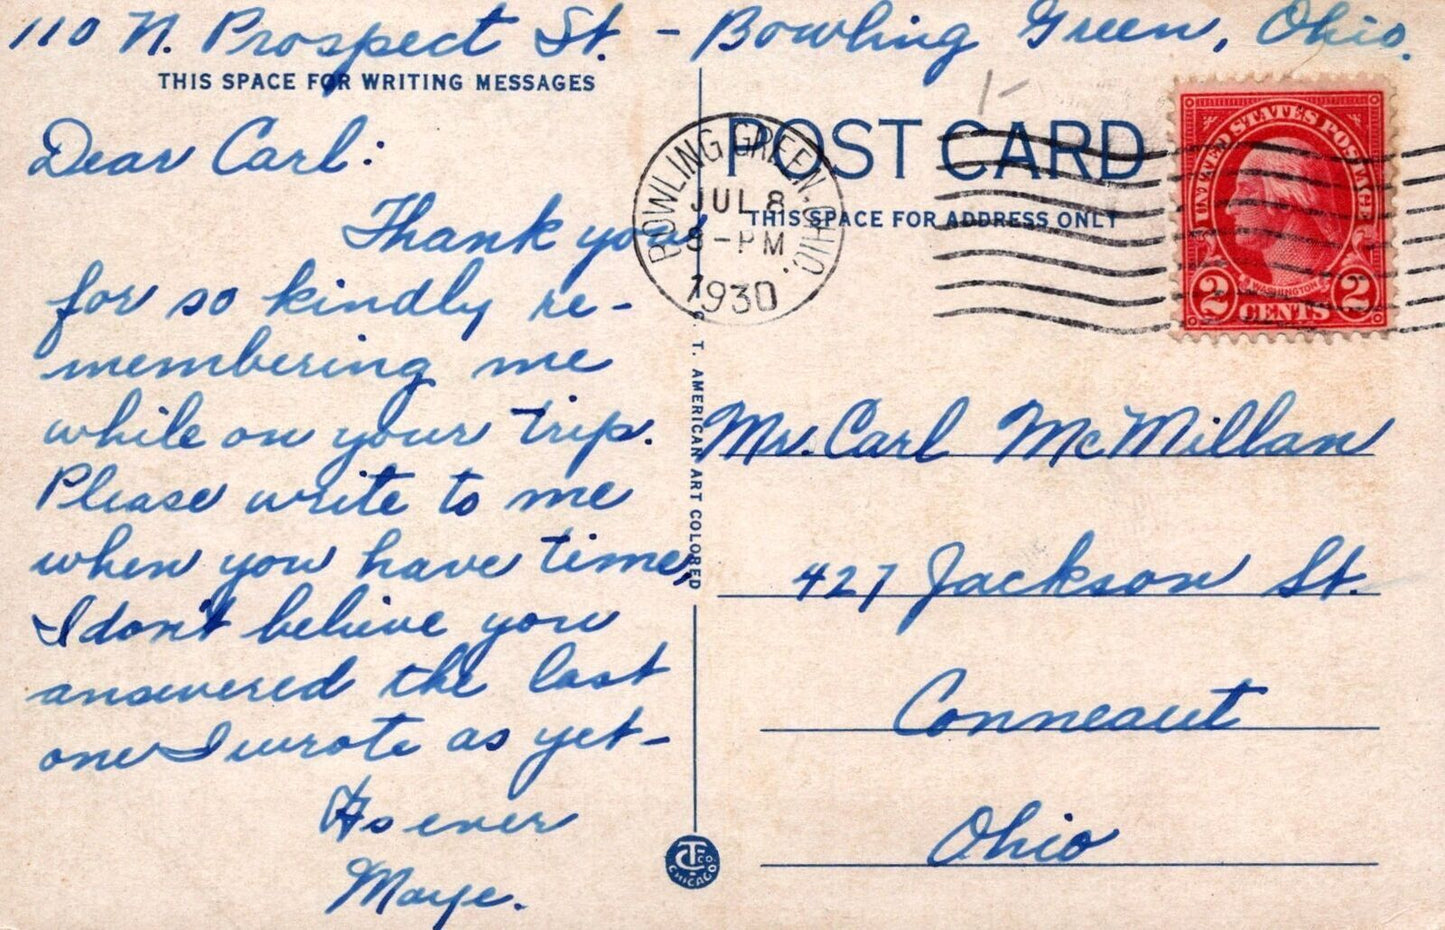 110 N. Prospect St. - Bowling Green, Ohio.
THIS SPACE FOR WRITING MESSAGES
Dear Carl:
Thank you
for so kindly re-
membering me
while on your trip.
Please write to me
when you have time,
I don't believe you
answered the last
one I wrote as yet-
As ever
Maye.
C. T. AMERICAN ART COLORED
CT CO
CHICAGO
POST CARD
THIS SPACE FOR ADDRESS ONLY
BOWLING GREEN, OHIO.
JUL 8
8-PM
1930
UNITED STATES POSTAGE
WASHINGTON
2 CENTS 2
Mr. Carl McMillan
427 Jackson St.
Conneaut
Ohio